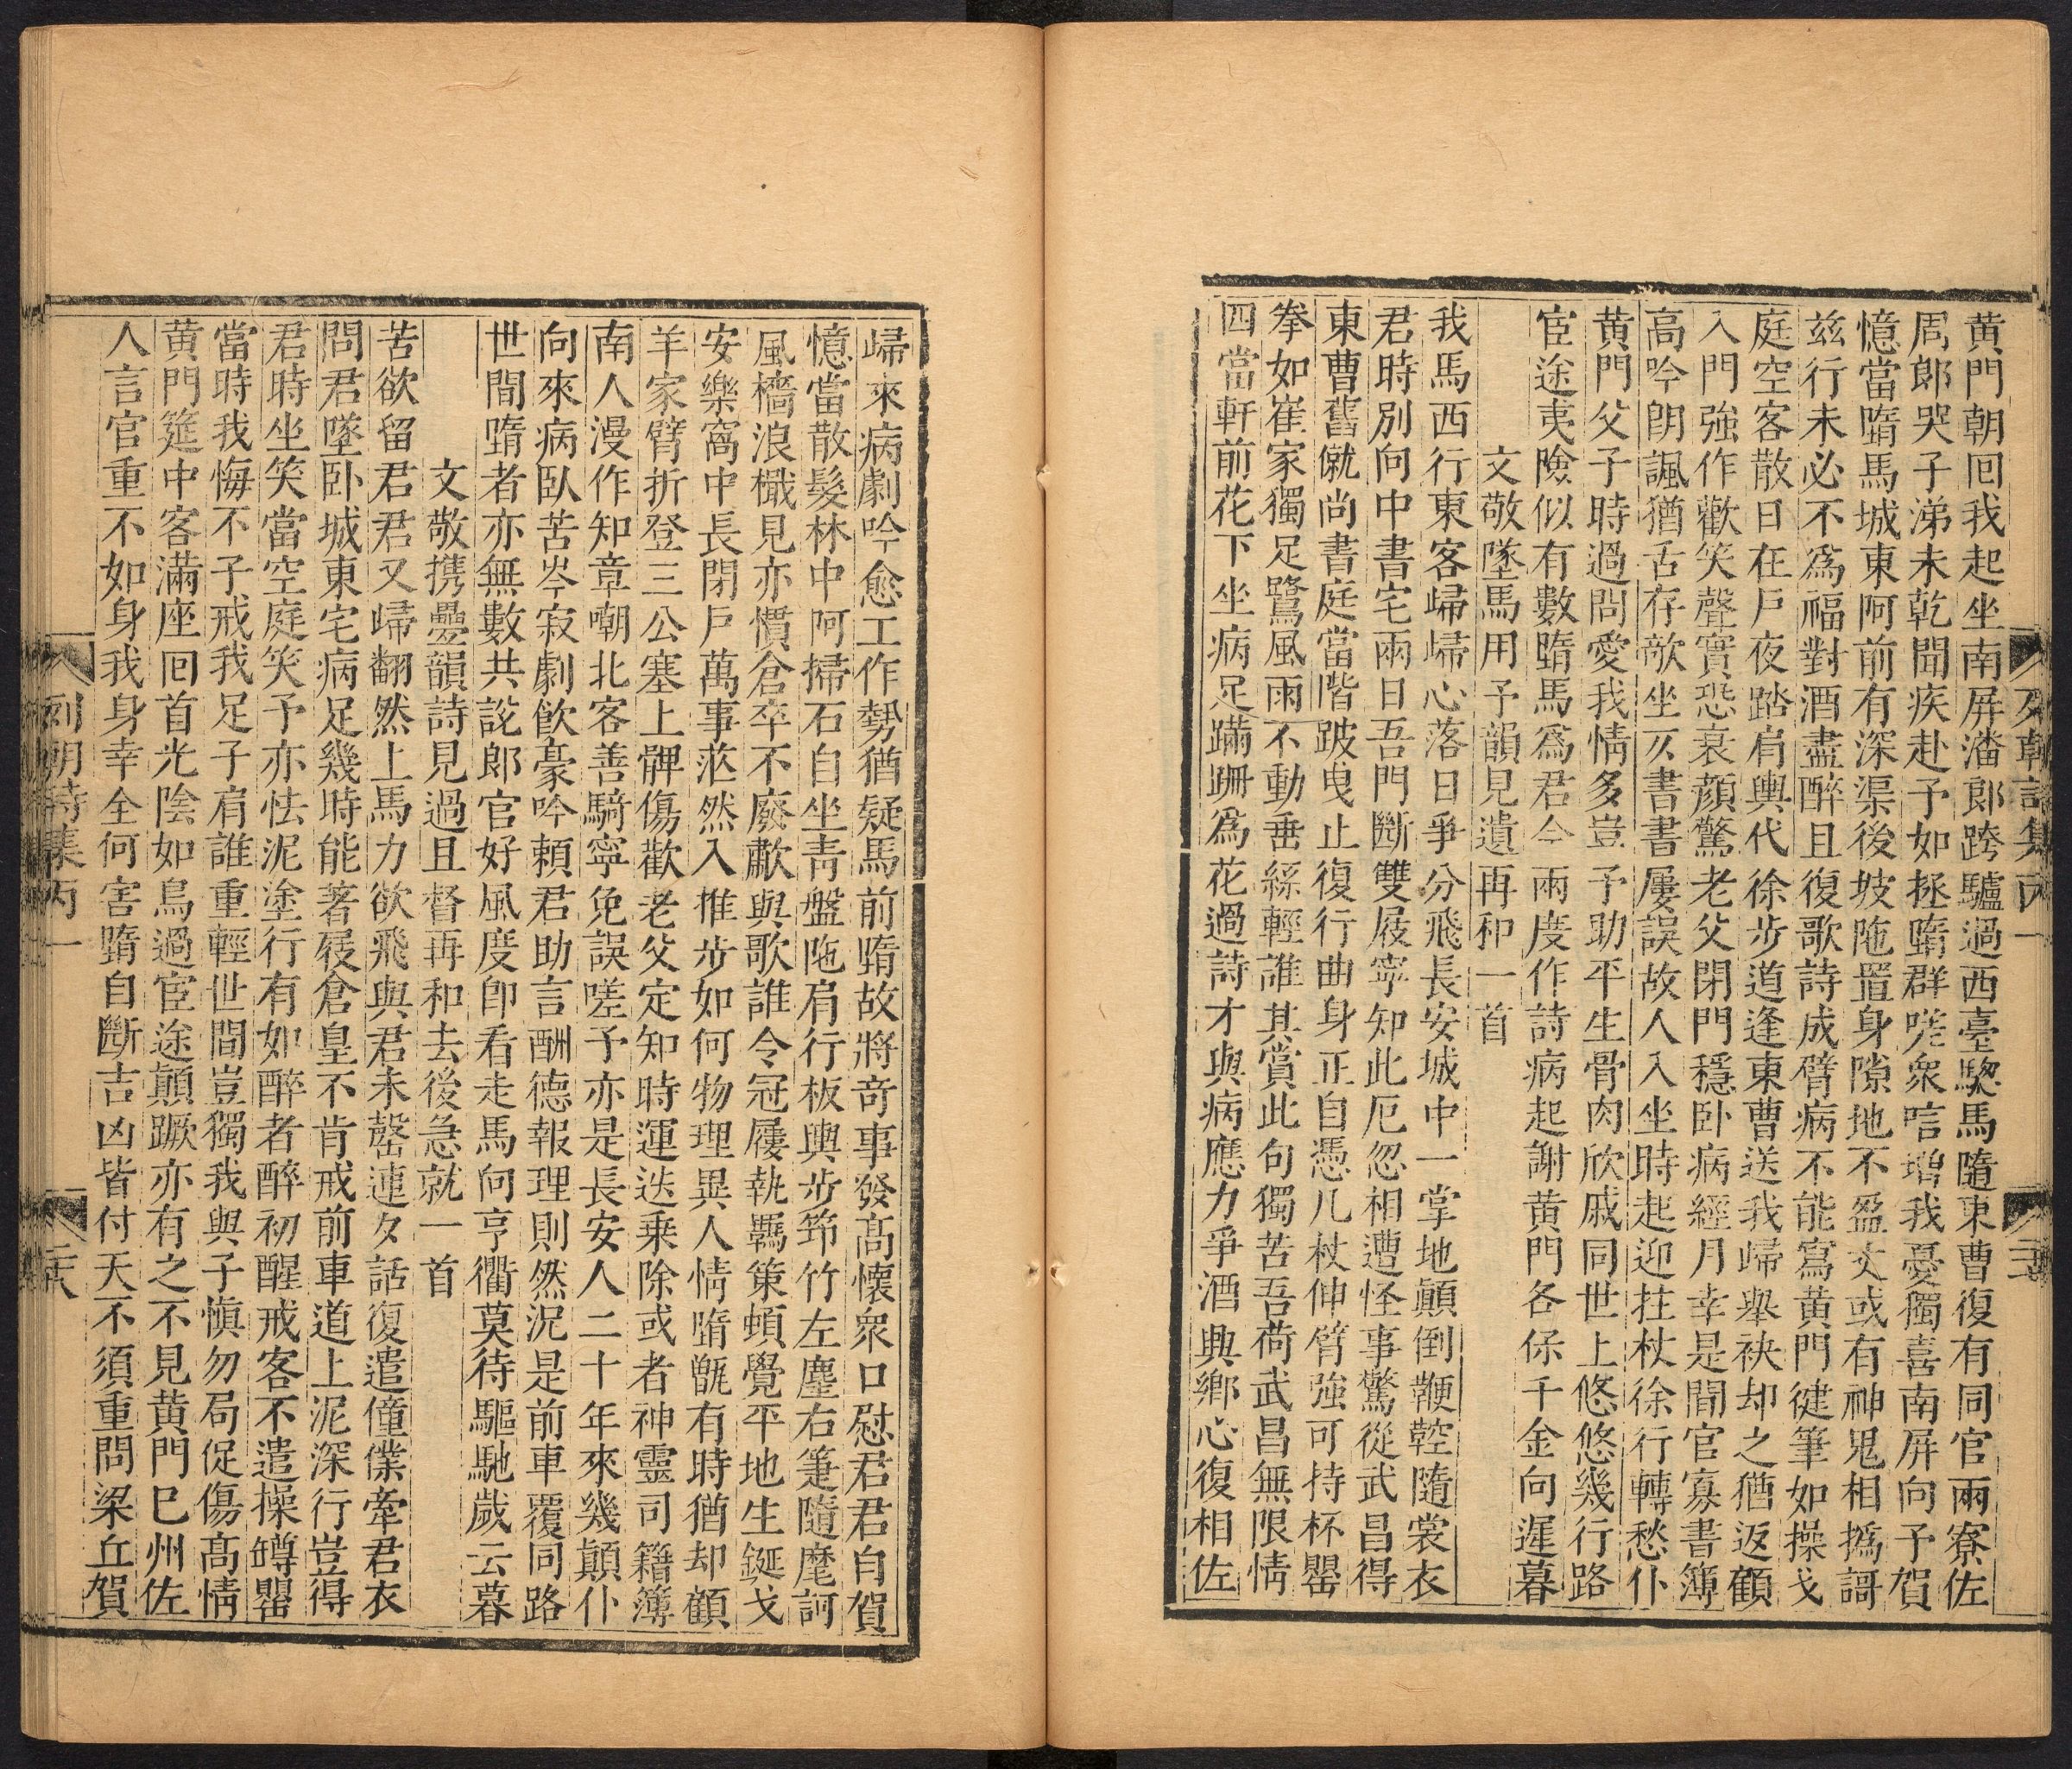 黄門朝回我起坐南屏潘郎跨驢過西臺驄馬隨東曹復有同官兩寮佐
周郎哭子涕未乾聞疾赴予如拯墮群嗟衆唁增我憂獨喜南屏向予賀
憶當墮馬城東阿前有深渠後坡陁置身隙地不盈丈或有神鬼相撝訶
兹行未必不爲福對酒盡醉且復歌詩成臂病不能寫黄門徤筆如操戈
庭空客散日在戶夜踏肩輿代徐步道逢東曹送我歸舉袂却之猶返顧
入門強作歡笑聲實恐衰顔驚老父閉門穩卧病經月幸是閒官寡書簿
高吟朗諷猶舌存欹坐仄書書屢誤故人入坐時起迎拄杖徐行轉愁仆
黄門父子時過問愛我情多豈予助平生骨肉欣戚同世上悠悠幾行路
宦途夷險似有數墮馬爲君今兩度作詩病起謝黄門各保千金向遲暮
文敬墜馬用予韻見遺再和一首
我馬西行東客歸歸心落日爭分飛長安城中一掌地顛倒鞭鞚隨裳衣
君時別向中書宅兩日吾門斷雙屐寧知此厄忽相遭怪事驚從武昌得
東曹舊僦尚書庭當階跛曳止復行曲身正自憑几杖伸臂強可持杯罌
拳如崔家獨足鷺風雨不動垂絲輕誰其賞此句獨苦吾荷武昌無限情
四當軒前花下坐病足蹣跚爲花過詩才與病應力爭酒興鄉心復相佐
歸來病劇吟愈工作勢猶疑馬前墮故將奇事發高懷衆口慰君君自賀
憶當散髮林中阿掃石自坐靑盤陁肩行板輿步笻竹左麈右箑隨麾訶
風檣浪檝見亦慣倉卒不廢歗與歌誰令冠屨執羈策頓覺平地生鋋戈
安樂窩中長閉戶萬事茫然入推步如何物理異人情墮甑有時猶却顧
羊家臂折登三公塞上髀傷歡老父定知時運迭乗除或者神靈司籍簿
南人漫作知章嘲北客善騎寧免誤嗟予亦是長安人二十年來幾顛仆
向來病臥苦岑寂劇飮豪吟頼君助言酬德報理則然況是前車覆同路
世間墮者亦無數共說郎官好風度卽看走馬向亨衢莫待驅馳歲云暮
文敬携疊韻詩見過且督再和去後急就一首
苦欲留君君又歸翻然上馬力欲飛與君未罄連夕話復遣僮僕牽君衣
問君墜卧城東宅病足幾時能著屐倉皇不肯戒前車道上泥深行豈得
君時坐笑當空庭笑予亦怯泥塗行有如醉者醉初醒戒客不遣操罇罌
當時我悔不子戒我足子肩誰重輕世間豈獨我與子愼勿局促傷高情
黄門筵中客滿座回首光陰如鳥過宦途顛蹶亦有之不見黄門巳州佐
人言官重不如身我身幸全何害墮自斷吉凶皆付天不須重問梁丘賀
列朝詩集丙一
二十八